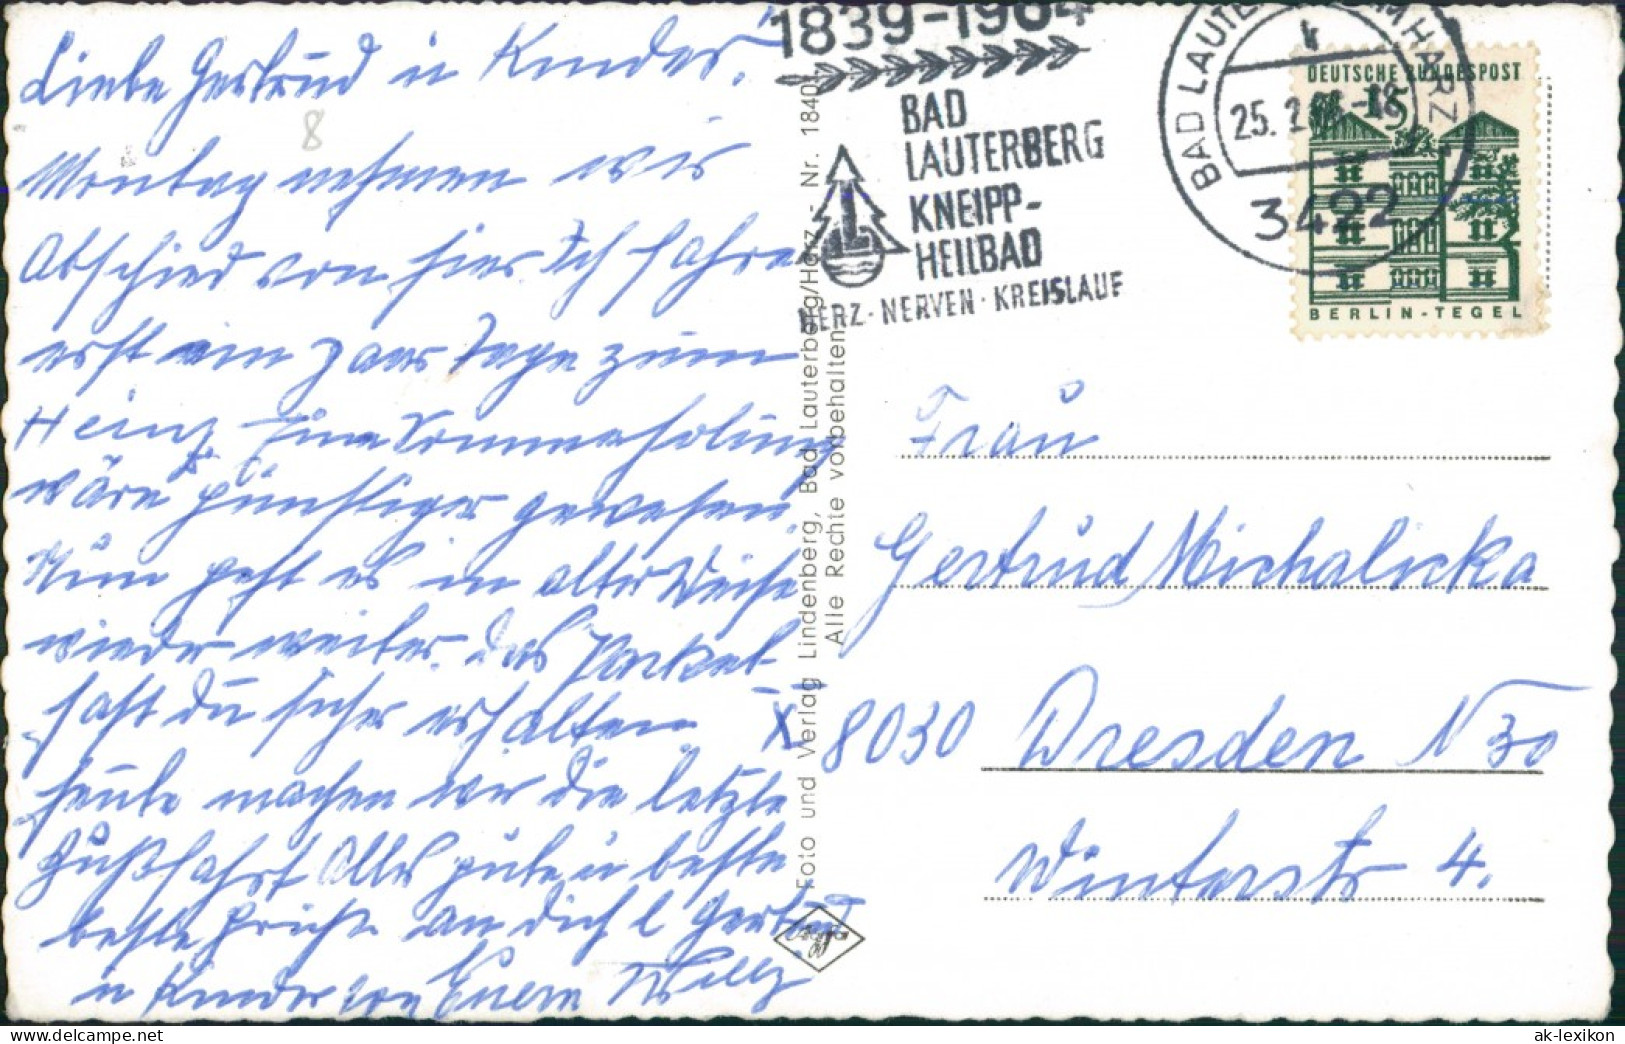 Liebe Gertrud u Kinder.
Montag nehmen wir
Abschied von hier. Ich fahre
erst ein paar Tage zum
Heinz. Eine Sommererholung
wäre günstiger gewesen.
Nun geht es in alter Weise
wieder weiter. Das Packet
hast Du sicher erhalten
heute machen wir die letzte
Fußfahrt Alles gute u beste
beste Grüße an Dich l Gertrud
u Kinder von Euern Willy
8
Foto und Verlag Lindenberg, Bad Lauterberg/Harz - Nr. 1840
Alle Rechte vorbehalten
1839-1964
BAD
LAUTERBERG
KNEIPP-
HEILBAD
HERZ · NERVEN · KREISLAUF
BAD LAUTERBERG IM HARZ
25. 2.
3422
DEUTSCHE BUNDESPOST
15
BERLIN-TEGEL
Frau
Gertrud Michalicka
X 8030 Dresden N 30
Winterstr 4.
ak-lexikon